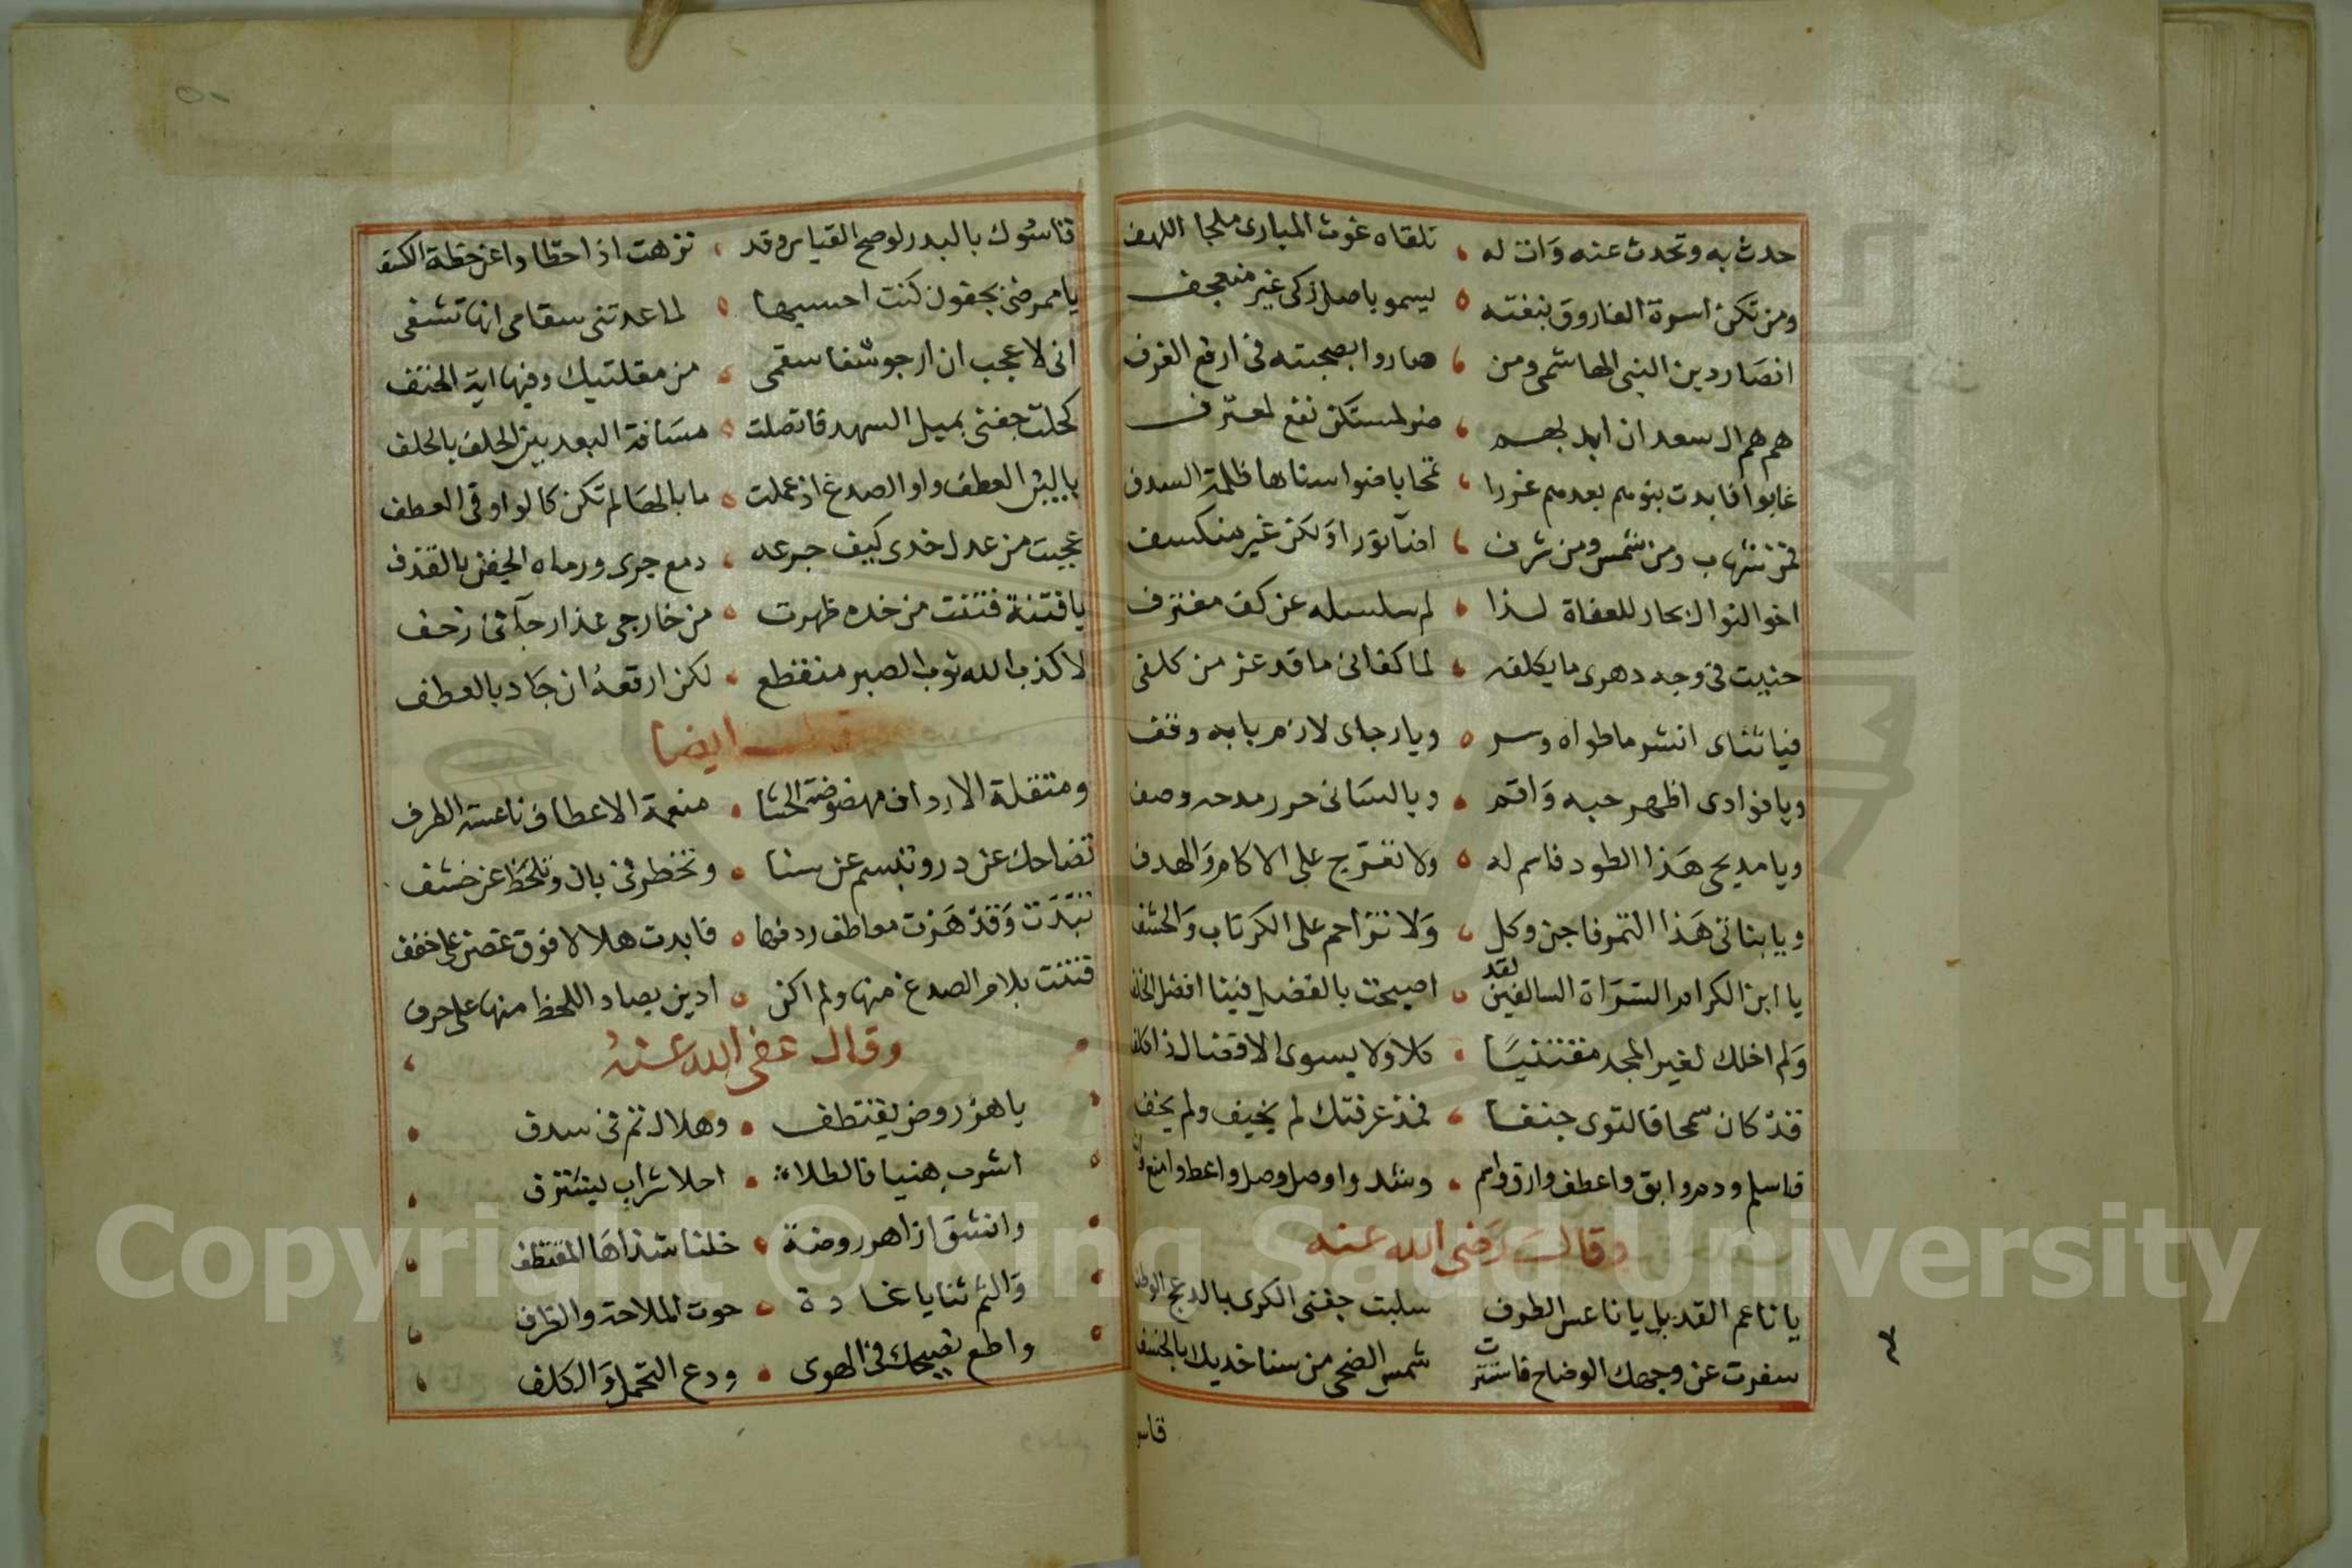 حدث به وتحدث عنه وانت له ، تلقاه غوث المبارى ملجا اللهف
ومن تكن اسرة الفاروق بنفته ه يسمو باصل زكى غير منعجف
انصار دين النبى الهاشمى ومن ، صاروا بصحبته فى ارفع الغرف
هم هم ال سعد ان لهم ، ضو لمستكن نفع لمعترف
غابوا فابدت بنوهم بعدهم غررا ، تحابا ضوا سناها ظلمة السدف
شهاب ومن شمس ومن شرف ، اضا نورا ولكن غير منكسف
اخو النوال بحار للعفاة لذا ، لم سلسله عن كف مغترف
حنيت فى وجه دهرى ما يكلفه ، لما كفانى ما قد عز من كلفى
فيا ثناى انشر ما طواه وسر ه ويا رجاى لازم بابه وقف
ويا فوادى اظهر حبه واقم ، ويا لسانى حرر مدحه وصف
ويا مديحى هذا الطود فاسم له ه ولا تعرج على الاكام والهدف
ويا بناتى هذا التمر فاجن وكل ، ولا تزاحم على الكرناب والحشف
يا ابن الكرام السراة السالفين لقد ه اصبحت بالفضل فينا افضل الخلف
ولم اخلك لغير المجد مقتنيا ، كلا ولا بسوى الافضال ذا كلف
قد كان سمحا فالتوى جنفا ، فمذ عرفتك لم يخيف ولم يخف
فاسلم ودم وابق واعطف وارق واسم ، وسد واوصل وصل واعط وامنع
وقال رضى الله عنه
يا ناعم القد بل يا ناعس الطرف سلبت جفنى الكرى بالدعج الوطف
سفرت عن وجهك الوضاح فاستترت شمس الضحى من سنا خديك بالخسف
قاس
قاسوك بالبدر لو صح القياس وقد ، نزهت اذا حطا واعن خطة الكسف
يا ممرضى بجفون كنت احسبها ه لما عدتنى سقامى انها تشفى
انى لا عجب ان ارجو شفا سقمى ، من مقلتيك وفيها اية الحتف
كحلت جفنى بميل السهد فاتصلت ه مسافة البعد بين الحلف بالحلف
يا لبين العطف واو الصدغ اذ عملت ه ما بالها لم تكن كالواو فى العطف
عجبت من عدل خدى كيف جرعه ، دمع جرى ورماه الجفن بالقذف
يا فتنة فتنت من خده ظهرت ه من خارجى عذار جآ فى زحف
لا كذب الله ثوب الصبر منقطع ، لكن ارقعه ان جاد بالعطف
ايضا
ومثقلة الارداف مهضوضة الحشا ، منعمة الاعطاف ناعسة الطرف
تضاحك عن در وتبسم عن سنا ه وتخطر فى بان وتلحظ عن خشف
تبدت وقد هزت معاطف ردفها ه فابدت هلالا فوق غصن على خفف
فتنت بلام الصدغ منها ولم اكن ه ادين بصاد اللحظ منها على حرف
وقال عفى الله عنه
يا هز روض يقتطف ، وهلال تم فى سدف
اشرب هنيا فالطلا ، احلا شراب يشترف
وانشق ازاهر روضة ، خلنا شذاها المقتطف
والثم ثنايا غادة ، حوت الملاحة والظرف
واطع نصيحك فى الهوى ، ودع التحمل والكلف
Copyright © King Saud University